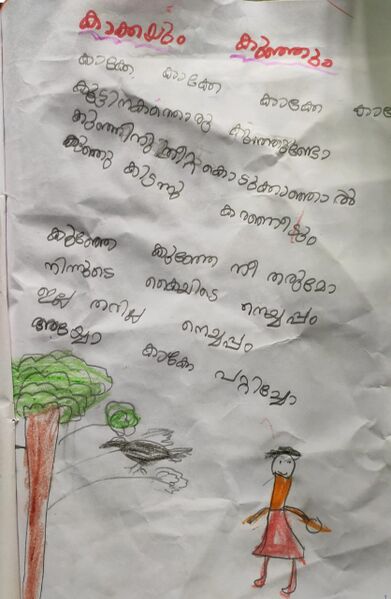 കാക്കയും കുഞ്ഞും
കാക്കേ കാക്കേ കാക്കേ കാക്കേ
കൂട്ടിനകത്തൊരു കുഞ്ഞുണ്ടോ
കുഞ്ഞിനു തീറ്റ കൊടുക്കാഞ്ഞാൽ
കുഞ്ഞു കിടന്നു
കരഞ്ഞീടും
കുഞ്ഞേ കുഞ്ഞേ നീ തരുമോ
നിന്നുടെ കൈയിടെ നെയ്യപ്പം
ഇല്ല തരില്ല നെയ്യപ്പം
അയ്യോ കാക്കേ പറ്റിച്ചോ